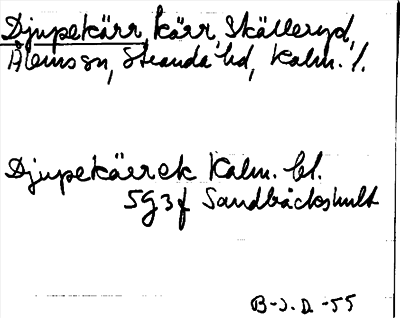 Djupekärr, kärr, Skälleryd,
Ålems sn, Stranda hd, Kalm. l.
Djupekärrek Kalm. bl.
5g3f Sandbäckshult
B-J.D.-55